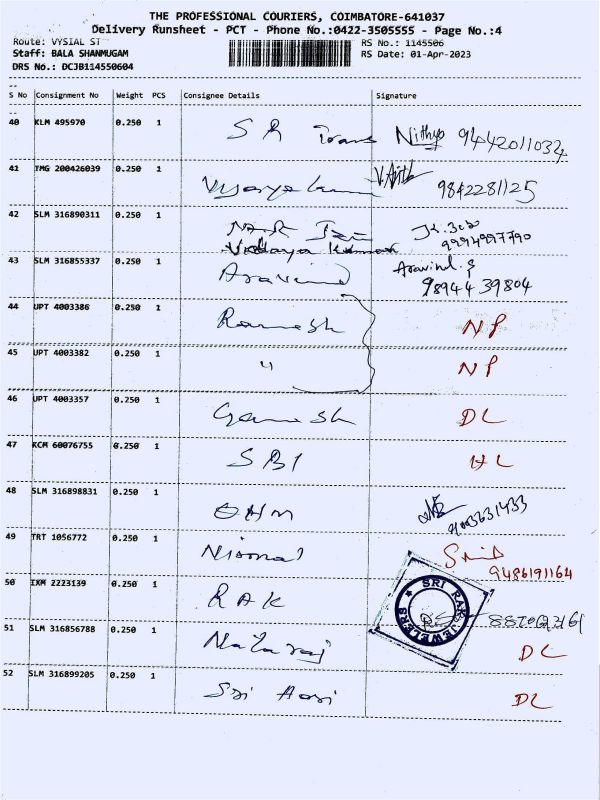 THE PROFESSIONAL COURIERS, COIMBATORE-641037
Delivery Runsheet - PCT - Phone No.:0422-3505555 - Page No.:4
Route: VYSIAL ST RS No.: 1145506
Staff: BALA SHANMUGAM RS Date: 01-Apr-2023
DRS No.: DCJB114550604
S No Consignment No Weight PCS Consignee Details Signature
40 KLM 495970 0.250 1 S R Trans Nithya 9442011034
41 TMG 200426039 0.250 1 Vijayakumar 9842281125
42 SLM 316890311 0.250 1
Vidhaya Kumar 9994997790
43 SLM 316855337 0.250 1 Aravind Aravind.S
98944 39804
44 UPT 4003386 0.250 1 Ramesh NP
45 UPT 4003382 0.250 1 " NP
46 UPT 4003357 0.250 1 Ganesh DL
47 KCM 60076755 0.250 1 SBI HL
48 SLM 316898831 0.250 1 OHM 9003631433
49 TRT 1056772 0.250 1 Nirmal
9486191164
50 IXM 2223139 0.250 1 RAK SRI RAK JEWELERS
51 SLM 316856788 0.250 1 Nataraj DL
52 SLM 316899205 0.250 1 Sri Hari DL